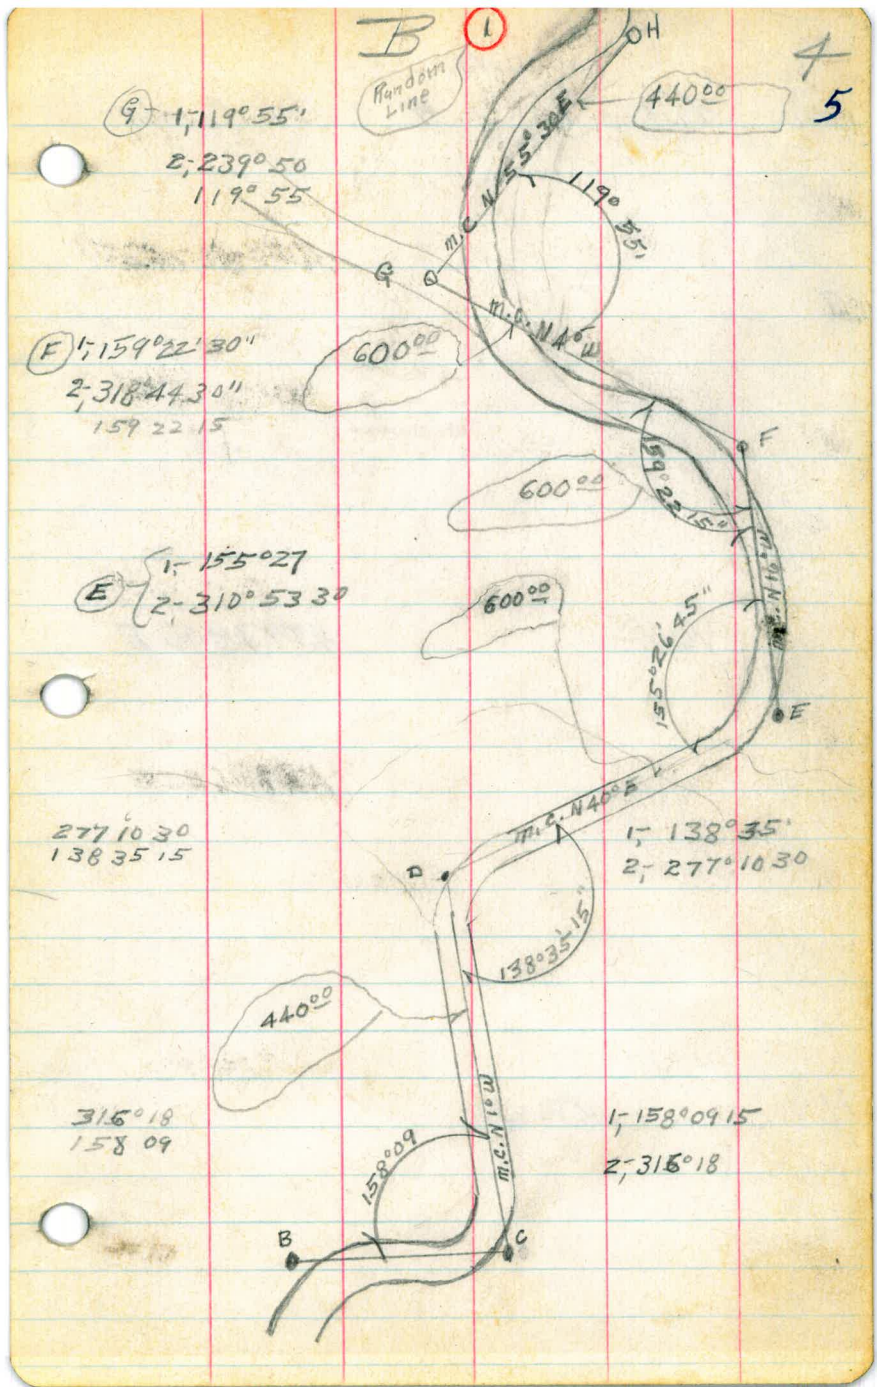 B 1
4
5
Random
Line
H
440 00
G 1, 119° 55'
2, 239° 50
119° 55
m.c. N 55° 30 E
119° 55'
G
m.c. N 40° W
600 00
F 1, 159° 22' 30"
2, 318° 44 30"
159 22 15
F
159° 22' 15"
600 00
E 1, 155° 27
2, 310° 53 30
600 00
155° 26' 45"
E
m.c. N 40° E
277 10 30
138 35 15
1, 138° 35'
2, 277° 10 30
D
138° 35' 15"
440 00
m.c. N 10 W
316° 18
158 09
1, 158° 09 15
2, 316° 18
158° 09
B
C